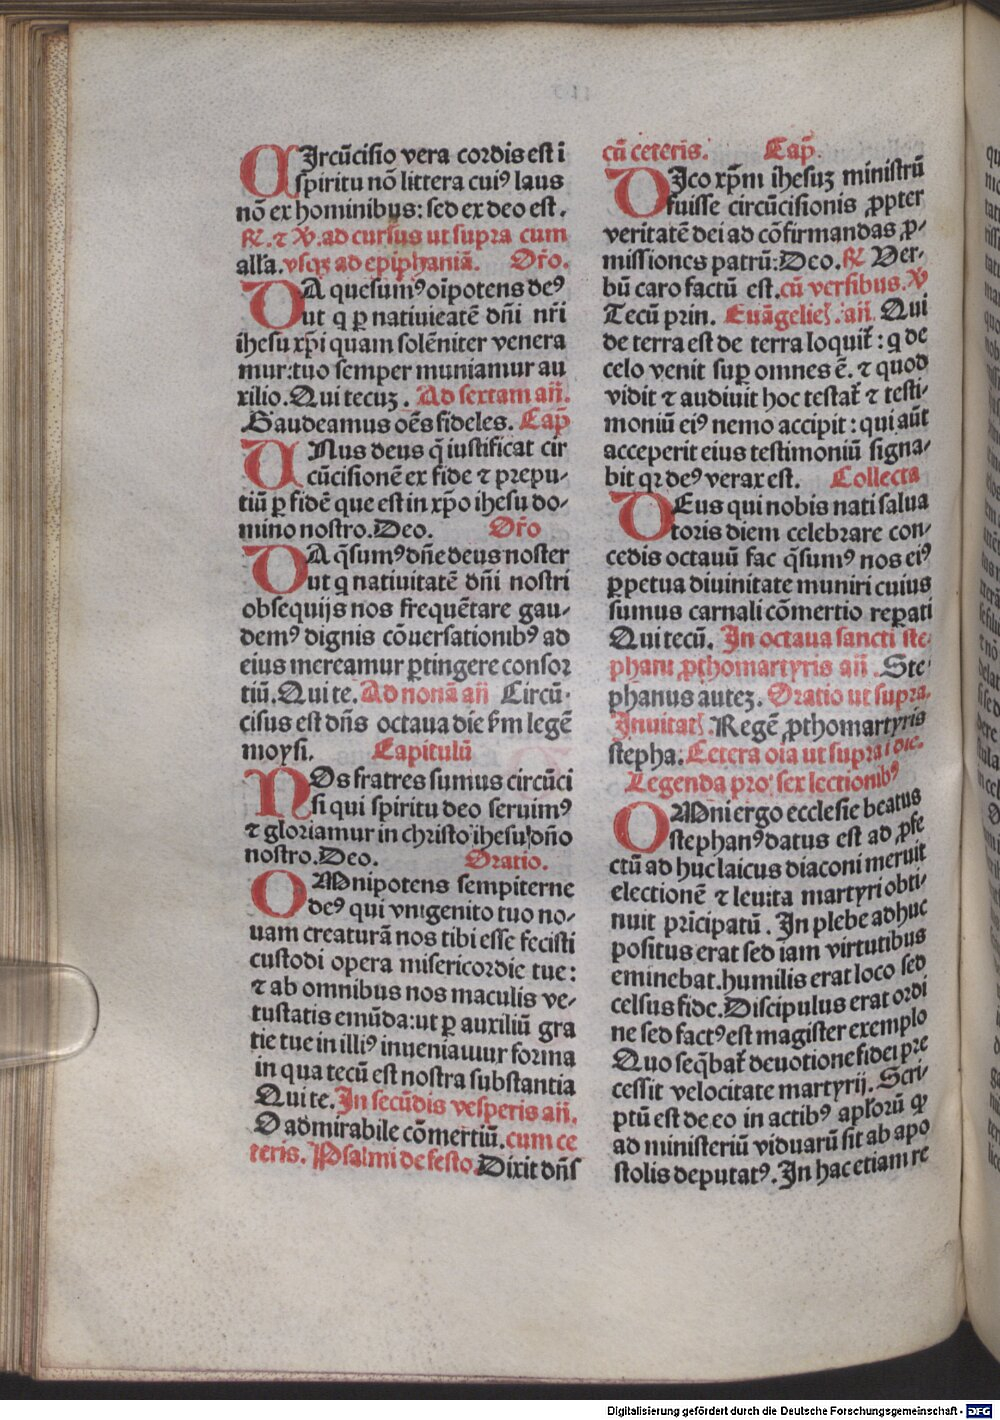 CIrcūcisio vera cordis est ī
spiritu nō littera cuiꝰ laus
nō ex hominibus: sed ex deo est.
℟. ⁊ ℣. ad cursus ut supra cum
all'a. vsqꝫ ad epiphaniā. Or̄o.
DA quesumꝰ oīpotens deꝰ
ut q ꝑ natiuieatē dn̄i nr̄i
ihesu xp̄i quam solēniter venera
mur: tuo semper muniamur au
xilio. Qui tecuꝫ. Ad sextam an̄.
Gaudeamus oēs fideles. Cap̄
VNus deus q̄ iustificat cir
cūcisionē ex fide ⁊ prepu-
tiū ꝑ fidē que est in xp̄o ihesu do-
mino nostro. Deo. Or̄o
DA q̄sumꝰ dn̄e deus noster
ut q natiuitatē dn̄i nostri
obsequijs nos frequētare gau-
demꝰ dignis cōuersationibꝰ ad
eius mereamur ꝑtingere consor
tiū. Qui te. Ad nonā an̄ Circū-
cisus est dn̄s octaua die k̄m legē
moysi. Capitulū
NOs fratres sumus circūci
si qui spiritu deo seruimꝰ
⁊ gloriamur in christo ihesu dn̄o
nostro. Deo. Oratio.
OMnipotens sempiterne
deꝰ qui vnigenito tuo no-
uam creaturā nos tibi esse fecisti
custodi opera misericordie tue:
⁊ ab omnibus nos maculis ve-
tustatis emūda: ut ꝑ auxiliū gra
tie tue in illiꝰ inueniamur forma
in qua tecū est nostra substantia
Qui te. In secūdis vesperis an̄.
O admirabile cōmertiū. cum ce
teris. Psalmi de festo. Dixit dn̄s
cū ceteris. Cap̄.
DIco xp̄m ihesuꝫ ministrū
fuisse circūcisionis ꝓpter
veritatē dei ad cōfirmandas ꝓ-
missiones patrū: Deo. ℟ Ver-
bū caro factū est. cū versibus. ℣
Tecū prin. Euāgelieꝭ. an̄. Qui
de terra est de terra loquit᷑: q de
celo venit suꝑ omnes ē. ⁊ quod
vidit ⁊ audiuit hoc testat᷑ ⁊ testi-
moniū eiꝰ nemo accipit: qui aūt
acceperit eius testimoniū signa-
bit qꝛ deꝰ verax est. Collecta
DEus qui nobis nati salua
toris diem celebrare con-
cedis octauū fac q̄sumꝰ nos eiꝰ
ꝑpetua diuinitate muniri cuius
sumus carnali cōmertio reꝑati
Qui tecū. In octaua sancti ste-
phani ꝓthomartyris an̄. Ste-
phanus auteꝫ. Oratio ut supra.
Inuitatꝭ. Regē ꝓthomartyris
stepha: Cetera oīa ut supra i die.
Legenda pro sex lectionibꝰ
OMni ergo ecclesie beatus
stephanꝰ datus est ad ꝓfe
ctū ad huc laicus diaconi meruit
electionē ⁊ leuita martyri obti-
nuit prīcipatū. In plebe adhuc
positus erat sed iam virtutibus
eminebat. humilis erat loco sed
celsus fide. Discipulus erat ordi
ne sed factꝰ est magister exemplo
Quo seq̄bat᷑ deuotione fidei pre
cessit velocitate martyrij. Scri-
ptū est de eo in actibꝰ apl'orū ꝙ
ad ministeriū viduarū sit ab apo
stolis deputatꝰ. In hac etiam re
Digitalisierung gefördert durch die Deutsche Forschungsgemeinschaft - DFG